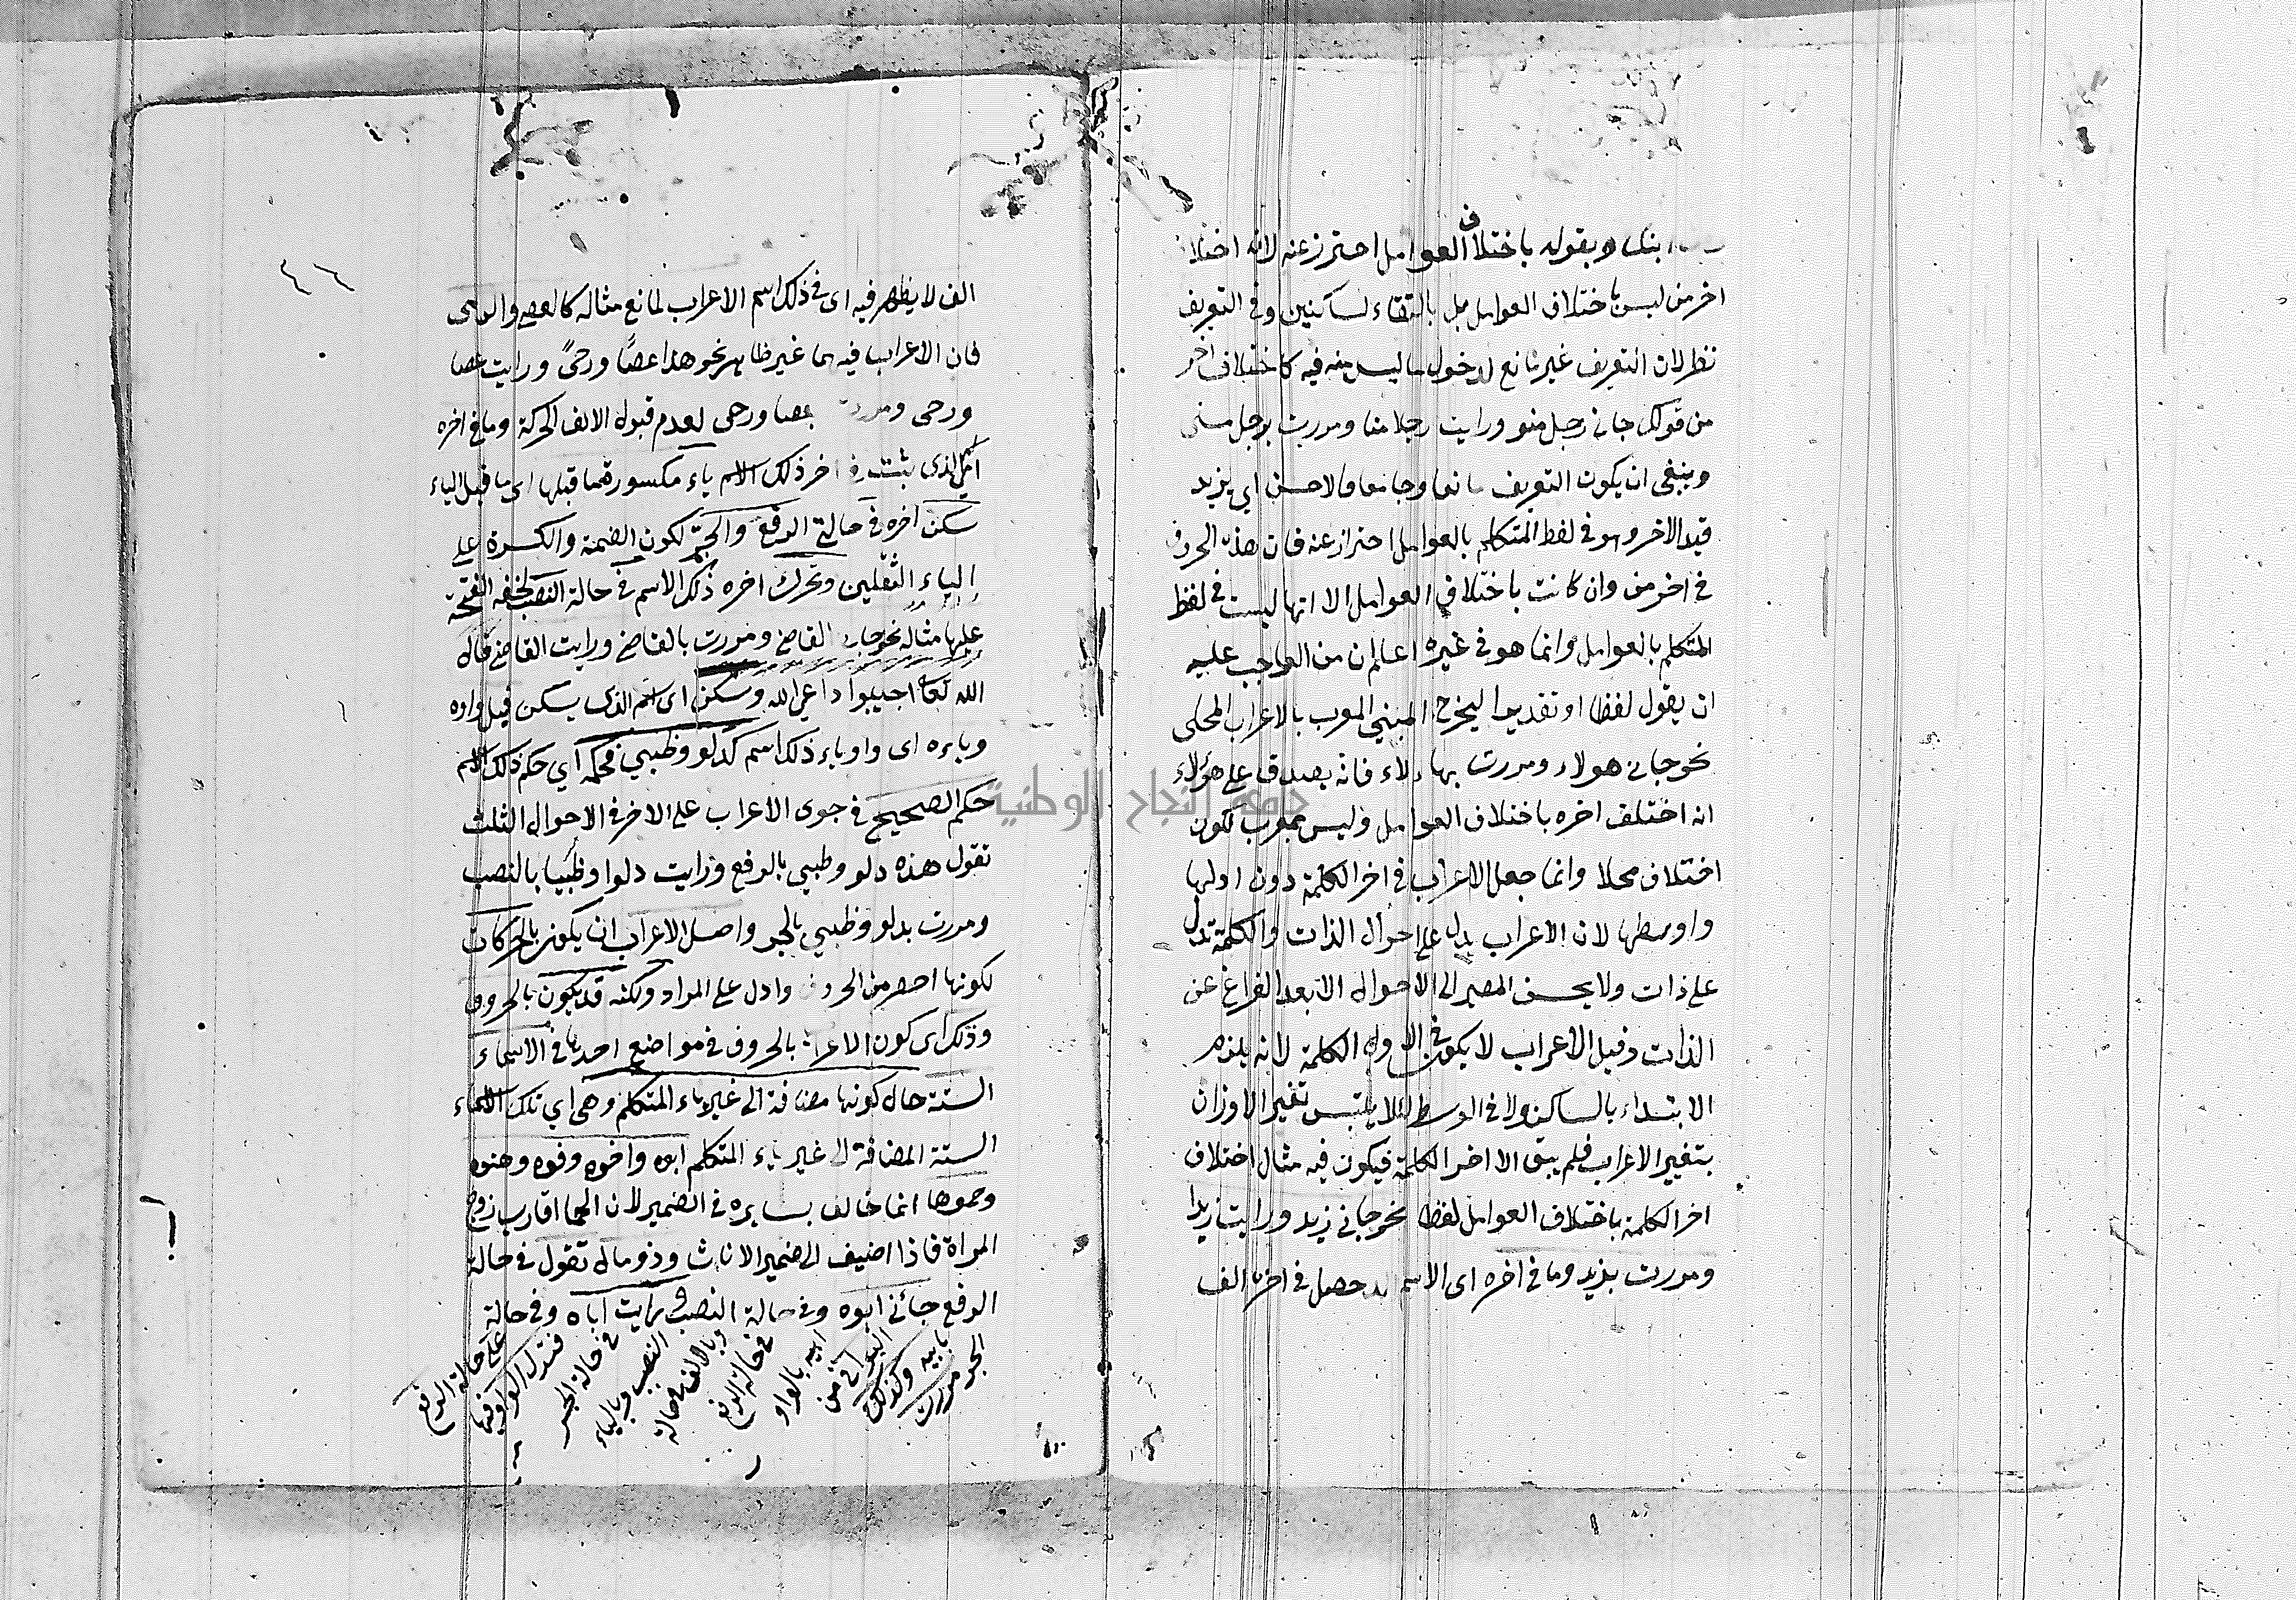 ابنك وبقوله باختلاف العوامل احترز عنه لانه اختلا
اخر من ليس باختلاف العوامل بل بالتقاء لساكنين وفي التعريف
نظر لان التعريف غير مانع لدخول ما ليس منه فيه كاختلاف اخر
من قولك جاني رجل منو ورايت رجلا منا ومررت برجل مني
وينبغي ان يكون التعريف مانعا وجامعا فالاحسن اي يزيد
قيد الاخر وهو في لفظ المتكلم بالعوامل احتراز عنه فان هذه الحروف
في اخر من وان كانت باختلاف العوامل الا انها ليست في لفظ
المتكلم بالعوامل وانما هو في غيره اعلم ان من الواجب عليه
ان يقول لفظا او تقديرا ليخرج المبني المعرب بالاعراب المحلى
نحو جاني هولاء ومررت بهاولاء فانه يصدق على هؤلاء
انه اختلف اخره باختلاف العوامل وليس بمعرب لكون
اختلاف محلا وانما جعل الاعراب في اخر الكلمة دون اولها
واوسطها لان الاعراب يدل على احوال الذات والكلمة تدل
على ذات ولا يحسن المصير الى الاحوال الا بعد الفراغ عن
الذات وقيل الاعراب لا يكون في الاول الكلمة لانه يلزم
الابتداء بالساكن ولا في الوسط لئلا يلتبس تغير الاوزان
بتغيير الاعراب فلم يبق الا اخر الكلمة فيكون فيه مثال اختلاف
اخر الكلمة باختلاف العوامل لفظا نحو جاني زيد ورايت زيدا
ومررت بزيد وما في اخره اى الاسم حصل في اخره الف
٤٦
الف لا يظهر فيه اى في ذلك اسم الاعراب لمانع مثاله كالعصى والرحى
فان الاعراب فيهما غير ظاهر نحو هذا عصًا ورحىً ورايت عصا
ورحى ومررت بعصا ورحى لعدم قبول الالف الحركة وما في اخره
الذى يثبت في اخر ذلك الاسم ياء مكسورة ما قبلها اى ما قبل الياء
سكن اخره في حالتي الرفع والجر لكون الضمة والكسرة على
الياء الثقلين وتحرك اخره ذلك الاسم في حالة النصب لخفه الفتحة
عليها مثاله نحو جاني القاضي ومررت بالقاضي ورايت القاضي قال
الله تعالى اجيبوا داعي الله وسكن اى اسم الذى يسكن قبل واوه
وياءه اى واو ياء ذلك اسم كدلو وظبي فحكمه اي حكم ذلك الاسم
حكم الصحيح في جوى الاعراب على الاخر في الاحوال الثلث
تقول هذه دلو وظبي بالرفع ورايت دلوا وظبيا بالنصب
ومررت بدلو وظبي بالجر واصل الاعراب ان يكون بالحركات
لكونها اخصر من الحروف وادل على المراد ولكنه قد يكون بالحروف
وذلك اى كون الاعراب بالحروف في مواضع احدها في الاسماء
الستة حال كونها مضافة الى غير ياء المتكلم وهي اي تلك الاسماء
الستة المضافة الى غير ياء المتكلم ابوه واخوه وفوه وهنوه
وحموها انما خالف بسايره في الضمير لان الحما اقارب زوج
المراة فاذا اضيف الى ضمير الاناث وذو مال تقول في حالة
الرفع جائني ابوه وفي حالة النصب رايت اباه وفي حالة
الجر مررت
بابيه وكذلك
البواقي من
ابيه بالواو
في حالة الرفع
وبالالف في حالة
النصب وبالياء
في حالة الجر
فتدل الواو فيها
على حالة الرفع
جامعة النجاح الوطنية